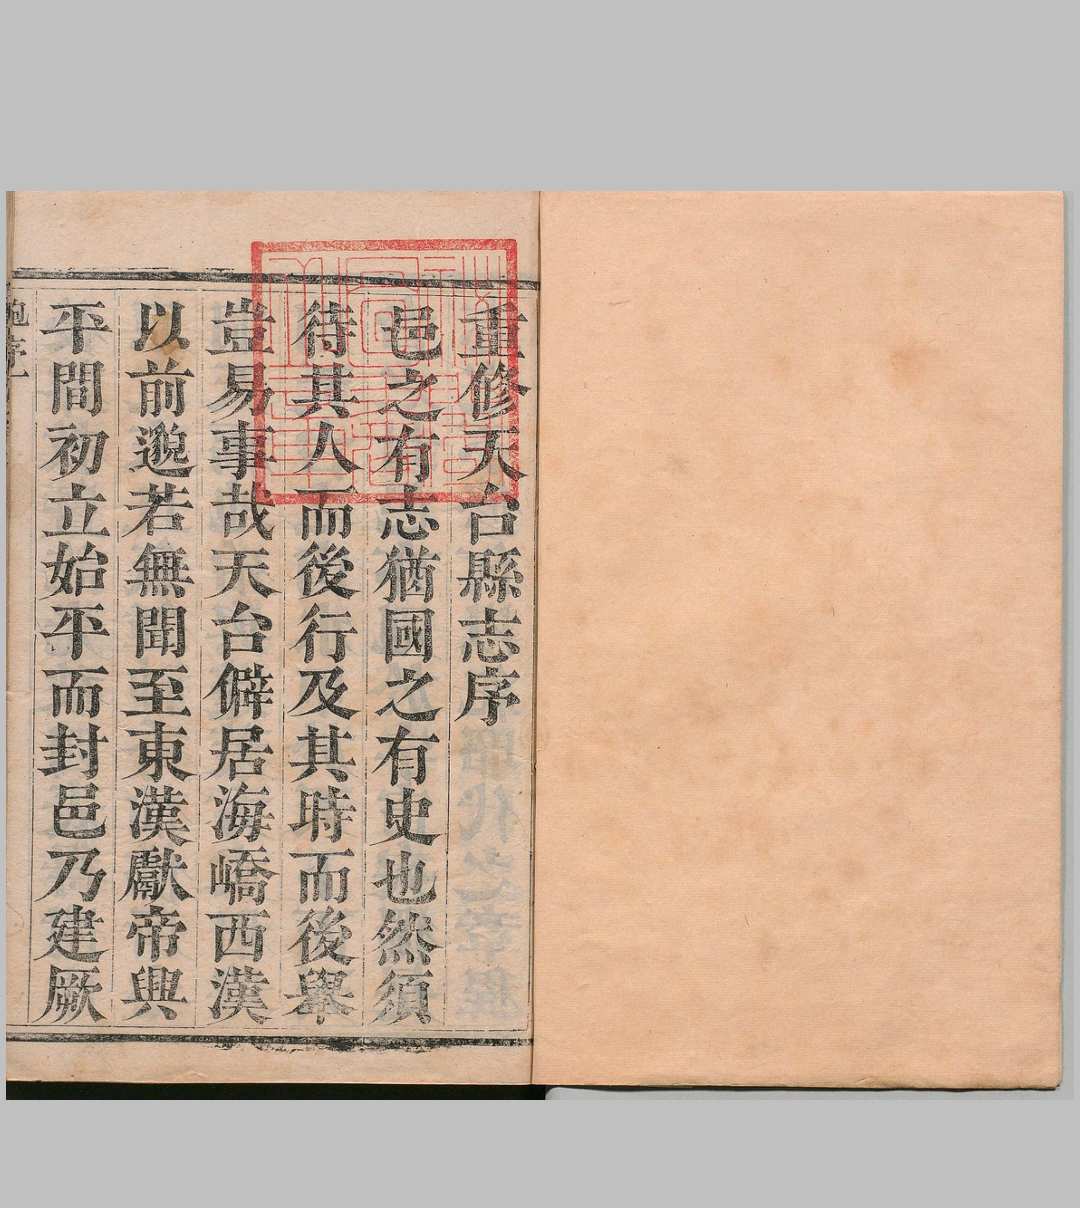 重修天台縣志序
邑之有志猶國之有史也然須
待其人而後行及其時而後舉
豈易事哉天台僻居海嶠西漢
以前邈若無聞至東漢獻帝興
平間初立始平而封邑乃建厥
序一